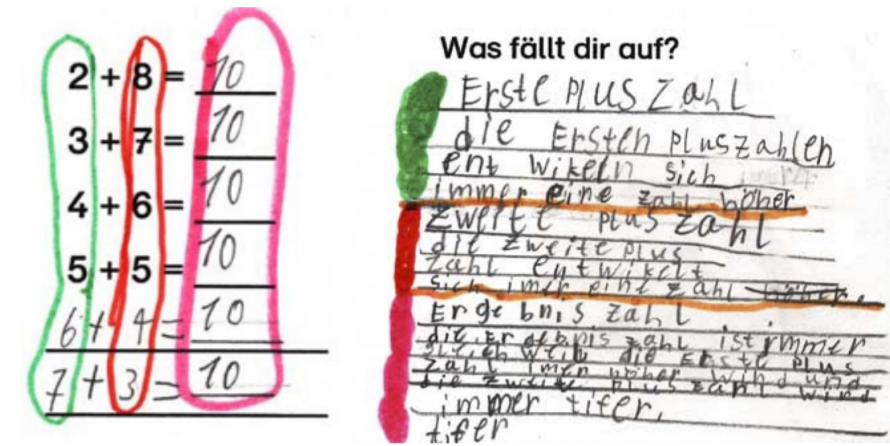 2 + 8 = 10
3 + 7 = 10
4 + 6 = 10
5 + 5 = 10
6 + 4 = 10
7 + 3 = 10
Was fällt dir auf?
Erste Plus Zahl
die Ersten pluszahlen
ent wikeln sich
immer eine zahl höher
zweite plus zahl
die zweite plus
zahl entwikelt
sich imer eine zahl höher.
Erge bnis zahl
die Er gebnis zahl ist immer
gleich weil die Erste plus
zahl imer höher wird und
die zweite plus zahl wird
immer tifer.
tifer